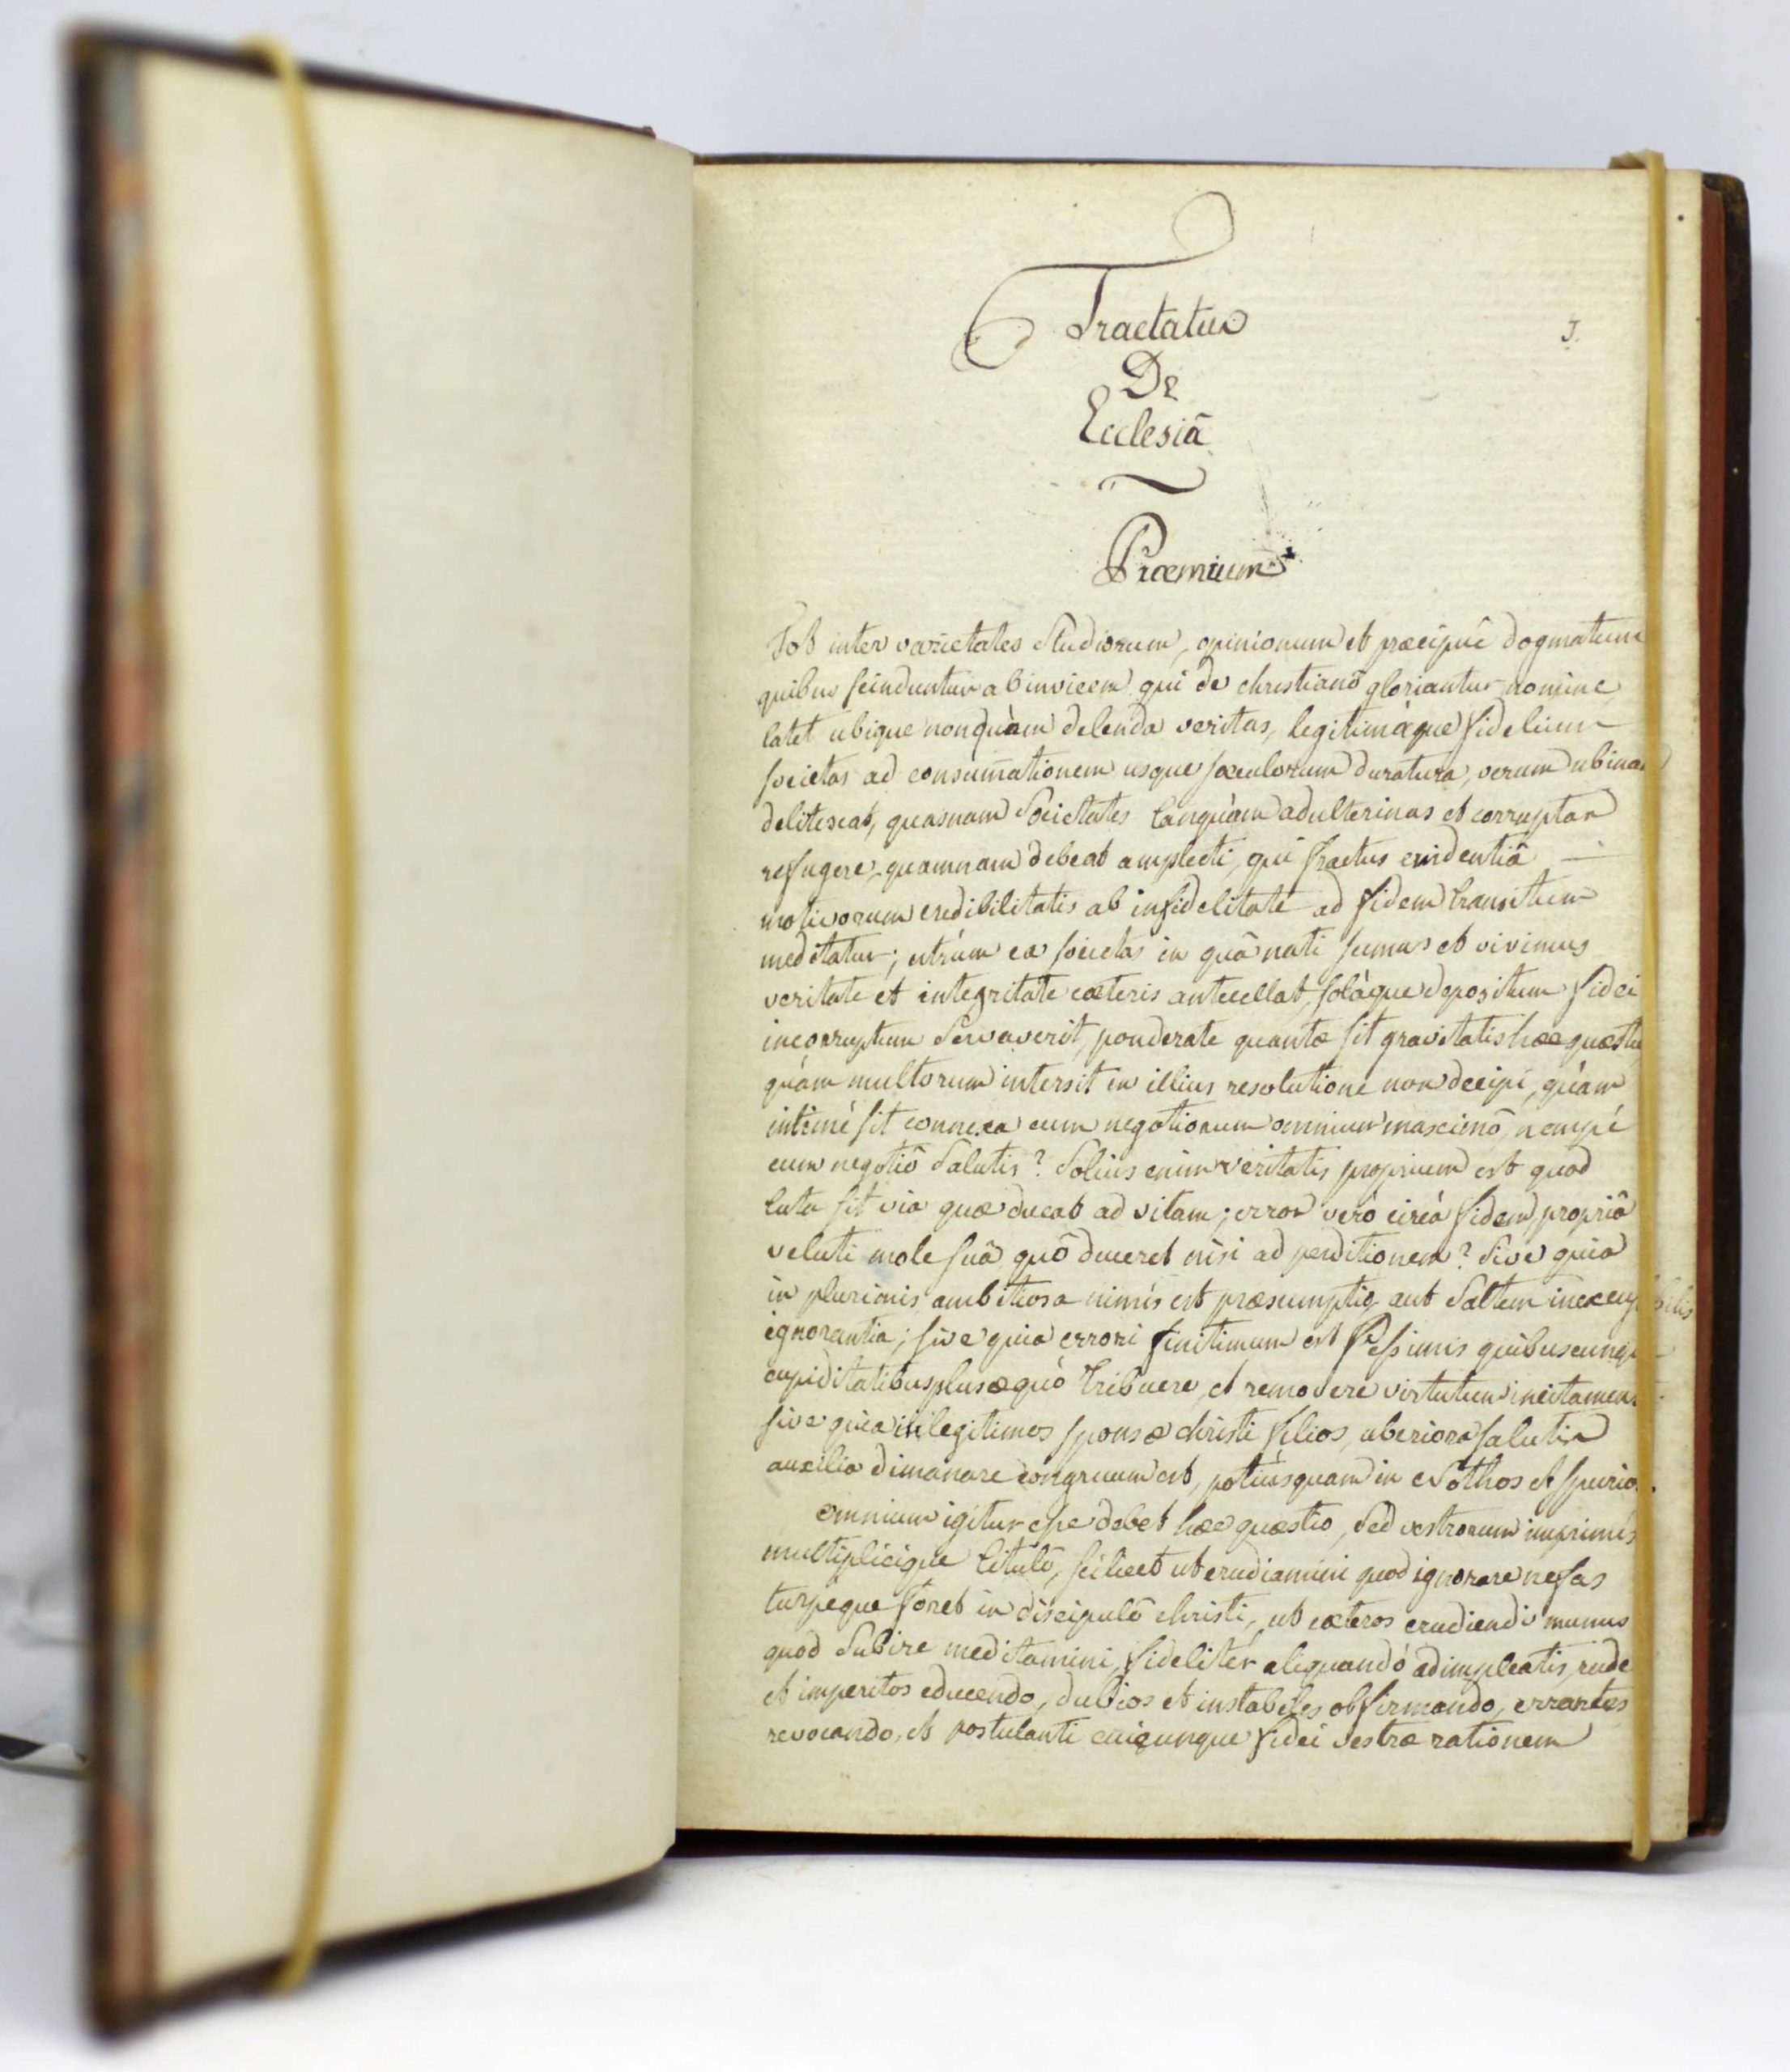 Tractatus
1.
De
Ecclesiâ
Prœmium
Tot inter varietates Studiorum, opinionum et præcipuè dogmatum
quibus scinduntur ab invicem qui de christianô gloriantur nomine,
latet ubique nonquàm delenda veritas, legitimàque fidelium
societas ad consumationem usque sæculorum duratura, verum ubinam
delitescat, quasnam Societates tanquàm adulterinas et corruptas
refugere, quamnam debeat amplecti, qui fractus evidentiâ
motivorum credibilitatis ab infidelitate ad fidem transitum
meditatur; utrùm ea societas in quâ nati sumus et vivimus
veritate et integritate cæteris antecellat, solàque depositum fidei
incorruptum Servaverit, ponderate quantæ sit gravitatis hæc quæstio
quàm multorum intersit in illius resolutione non decipi, quàm
intimè sit connexa cum negotiorum omnium maximô, nempè
cum negotiô Salutis? Solius enim veritatis proprium est quod
tuta sit via quæ ducat ad vitam; error verò circà fidem propriâ
veluti mole suâ quô duceret nisi ad perditionem? Sive quia
in plurimis ambitiosa nimis est præsumptio aut Saltem inexcusabilis
ignorantia; sive quia errori finitimum est Pessimis quibuscunque
cupiditatibus plus æquò tribuere, et removere virtutum incitamenta
sive quia in legitimos sponsæ christi filios, uberiora salutis
auxilia dimanare congruum est, potiùsquam in Nothos et spurios.
omnium igitur esse debet hæc quæstio, Sed vestrorum imprimis
multiplicique titulô, scilicet ut erudiamini quod ignorare nefas
turpeque foret in discipulô christi, ut cæteros erudiendi munus
quod Subire meditamini, fideliter aliquandò adimpleatis, rude
et imperitos educendo, dubios et instabiles obfirmando, errantes
revocando, et postulanti cuiqunque fidei vestræ rationem